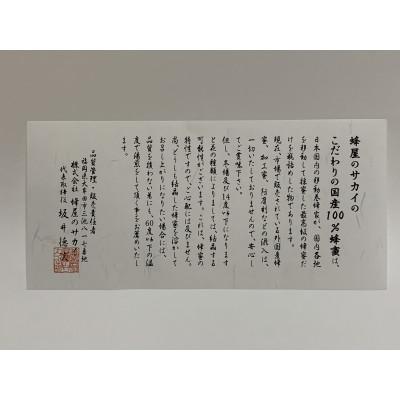 蜂屋のサカイの
こだわりの国産100％蜂蜜は、
日本国内の移動養蜂家が、国内各地
を移動して採蜜した最高級の蜂蜜だ
けを瓶詰めした物であります。
現在、市場で販売されている外国産蜂
蜜、加工蜜、阿膠糖などの混入は、
一切いたしておりませんので、安心し
てご賞味下さい。
但し、冬場及び14度以下になります
と花の種類によりましては、結晶する
可能性がございます。これは、蜂蜜の
特性ですので、ご心配には及びません。
尚、どうしても結晶した蜂蜜を溶かして
お召し上がりになりたい場合には、
品質を損わない為にも、60度以下の温
度で湯煎をして頂く事をお薦めいたし
ます。
品質管理・販売責任者
福岡県大牟田市三池八一七番地
株式会社 蜂屋のサカイ
代表取締役 坂井徳